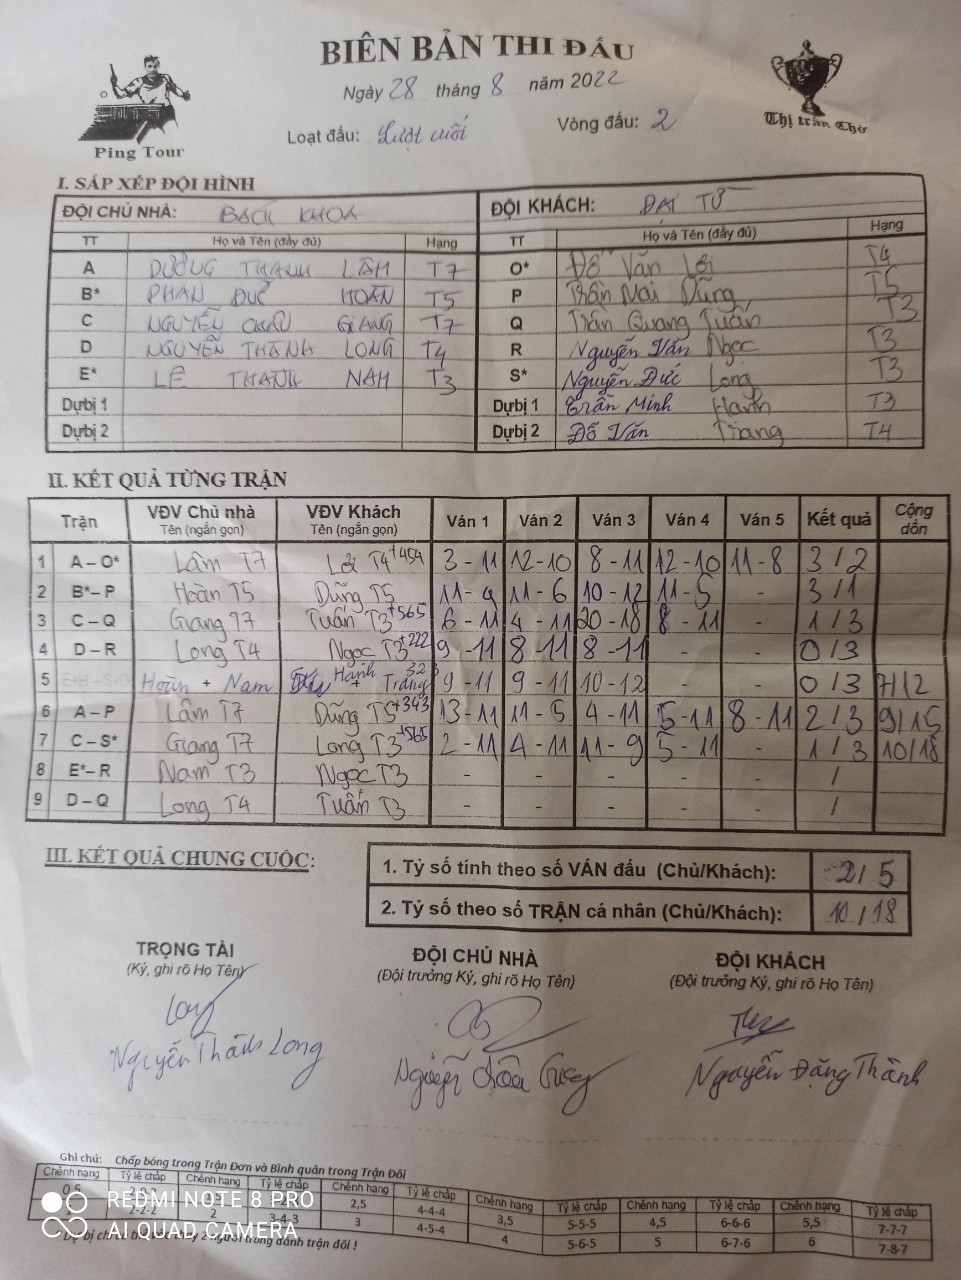 BIÊN BẢN THI ĐẤU
Ngày 28 tháng 8 năm 2022
Loạt đấu: Lượt cuối Vòng đấu: 2
Ping Tour
Thị trấn Chờ
I. SẮP XẾP ĐỘI HÌNH
ĐỘI CHỦ NHÀ: BÁCH KHOA ĐỘI KHÁCH: ĐẠI TỪ
TT Họ và Tên (đầy đủ) Hạng TT Họ và Tên (đầy đủ) Hạng
A DƯƠNG THANH LÂM T7 O* Đỗ Văn Lợi T4
B* PHAN ĐỨC HOÀN T5 P Trần Mai Dũng T5
C NGUYỄN CHÂU GIANG T7 Q Trần Quang Tuấn T3
D NGUYỄN THÀNH LONG T4 R Nguyễn Văn Ngọc T3
E* LÊ THANH NAM T3 S* Nguyễn Đức Long T3
Dự bị 1 Dự bị 1 Trần Minh Hạnh T3
Dự bị 2 Dự bị 2 Đỗ Văn Trang T4
II. KẾT QUẢ TỪNG TRẬN
Trận VĐV Chủ nhà VĐV Khách Ván 1 Ván 2 Ván 3 Ván 4 Ván 5 Kết quả Cộng dồn
Tên (ngắn gọn) Tên (ngắn gọn)
1 A – O* Lâm T7 Lợi T4 +454 3 - 11 12 - 10 8 - 11 12 - 10 11 - 8 3 / 2
2 B* – P Hoàn T5 Dũng T5 11 - 9 11 - 6 10 - 12 11 - 5 - 3 / 1
3 C – Q Giang T7 Tuấn T3 +565 6 - 11 4 - 11 20 - 18 8 - 11 - 1 / 3
4 D – R Long T4 Ngọc T3 +222 9 - 11 8 - 11 8 - 11 - - 0 / 3
5 Hoàn + Nam Hạnh + Trang 9 - 11 9 - 11 10 - 12 - - 0 / 3 7 / 12
6 A – P Lâm T7 Dũng T5 +343 13 - 11 11 - 5 4 - 11 5 - 11 8 - 11 2 / 3 9 / 15
7 C – S* Giang T7 Long T3 +565 2 - 11 4 - 11 11 - 9 5 - 11 - 1 / 3 10 / 18
8 E* – R Nam T3 Ngọc T3 - - - - - /
9 D – Q Long T4 Tuấn T3 - - - - - /
III. KẾT QUẢ CHUNG CUỘC:
1. Tỷ số tính theo số VÁN đấu (Chủ/Khách): 2 / 5
2. Tỷ số theo số TRẬN cá nhân (Chủ/Khách): 10 / 18
TRỌNG TÀI ĐỘI CHỦ NHÀ ĐỘI KHÁCH
(Ký, ghi rõ Họ Tên) (Đội trưởng Ký, ghi rõ Họ Tên) (Đội trưởng Ký, ghi rõ Họ Tên)
Nguyễn Thành Long Nguyễn Châu Giang Nguyễn Đặng Thành
Ghi chú: Chấp bóng trong Trận Đơn và Bình quân trong Trận Đôi
Chênh hạng Tỷ lệ chấp Chênh hạng Tỷ lệ chấp Chênh hạng Tỷ lệ chấp Chênh hạng Tỷ lệ chấp Chênh hạng Tỷ lệ chấp Chênh hạng Tỷ lệ chấp
0,5 2,5 4-4-4 3,5 5-5-5 4,5 6-6-6 5,5 7-7-7
2-2-2 2 3-4-3 3 4-5-4 4 5-6-5 5 6-7-6 6 7-8-7
người trong đánh trận đôi !
REDMI NOTE 8 PRO
AI QUAD CAMERA